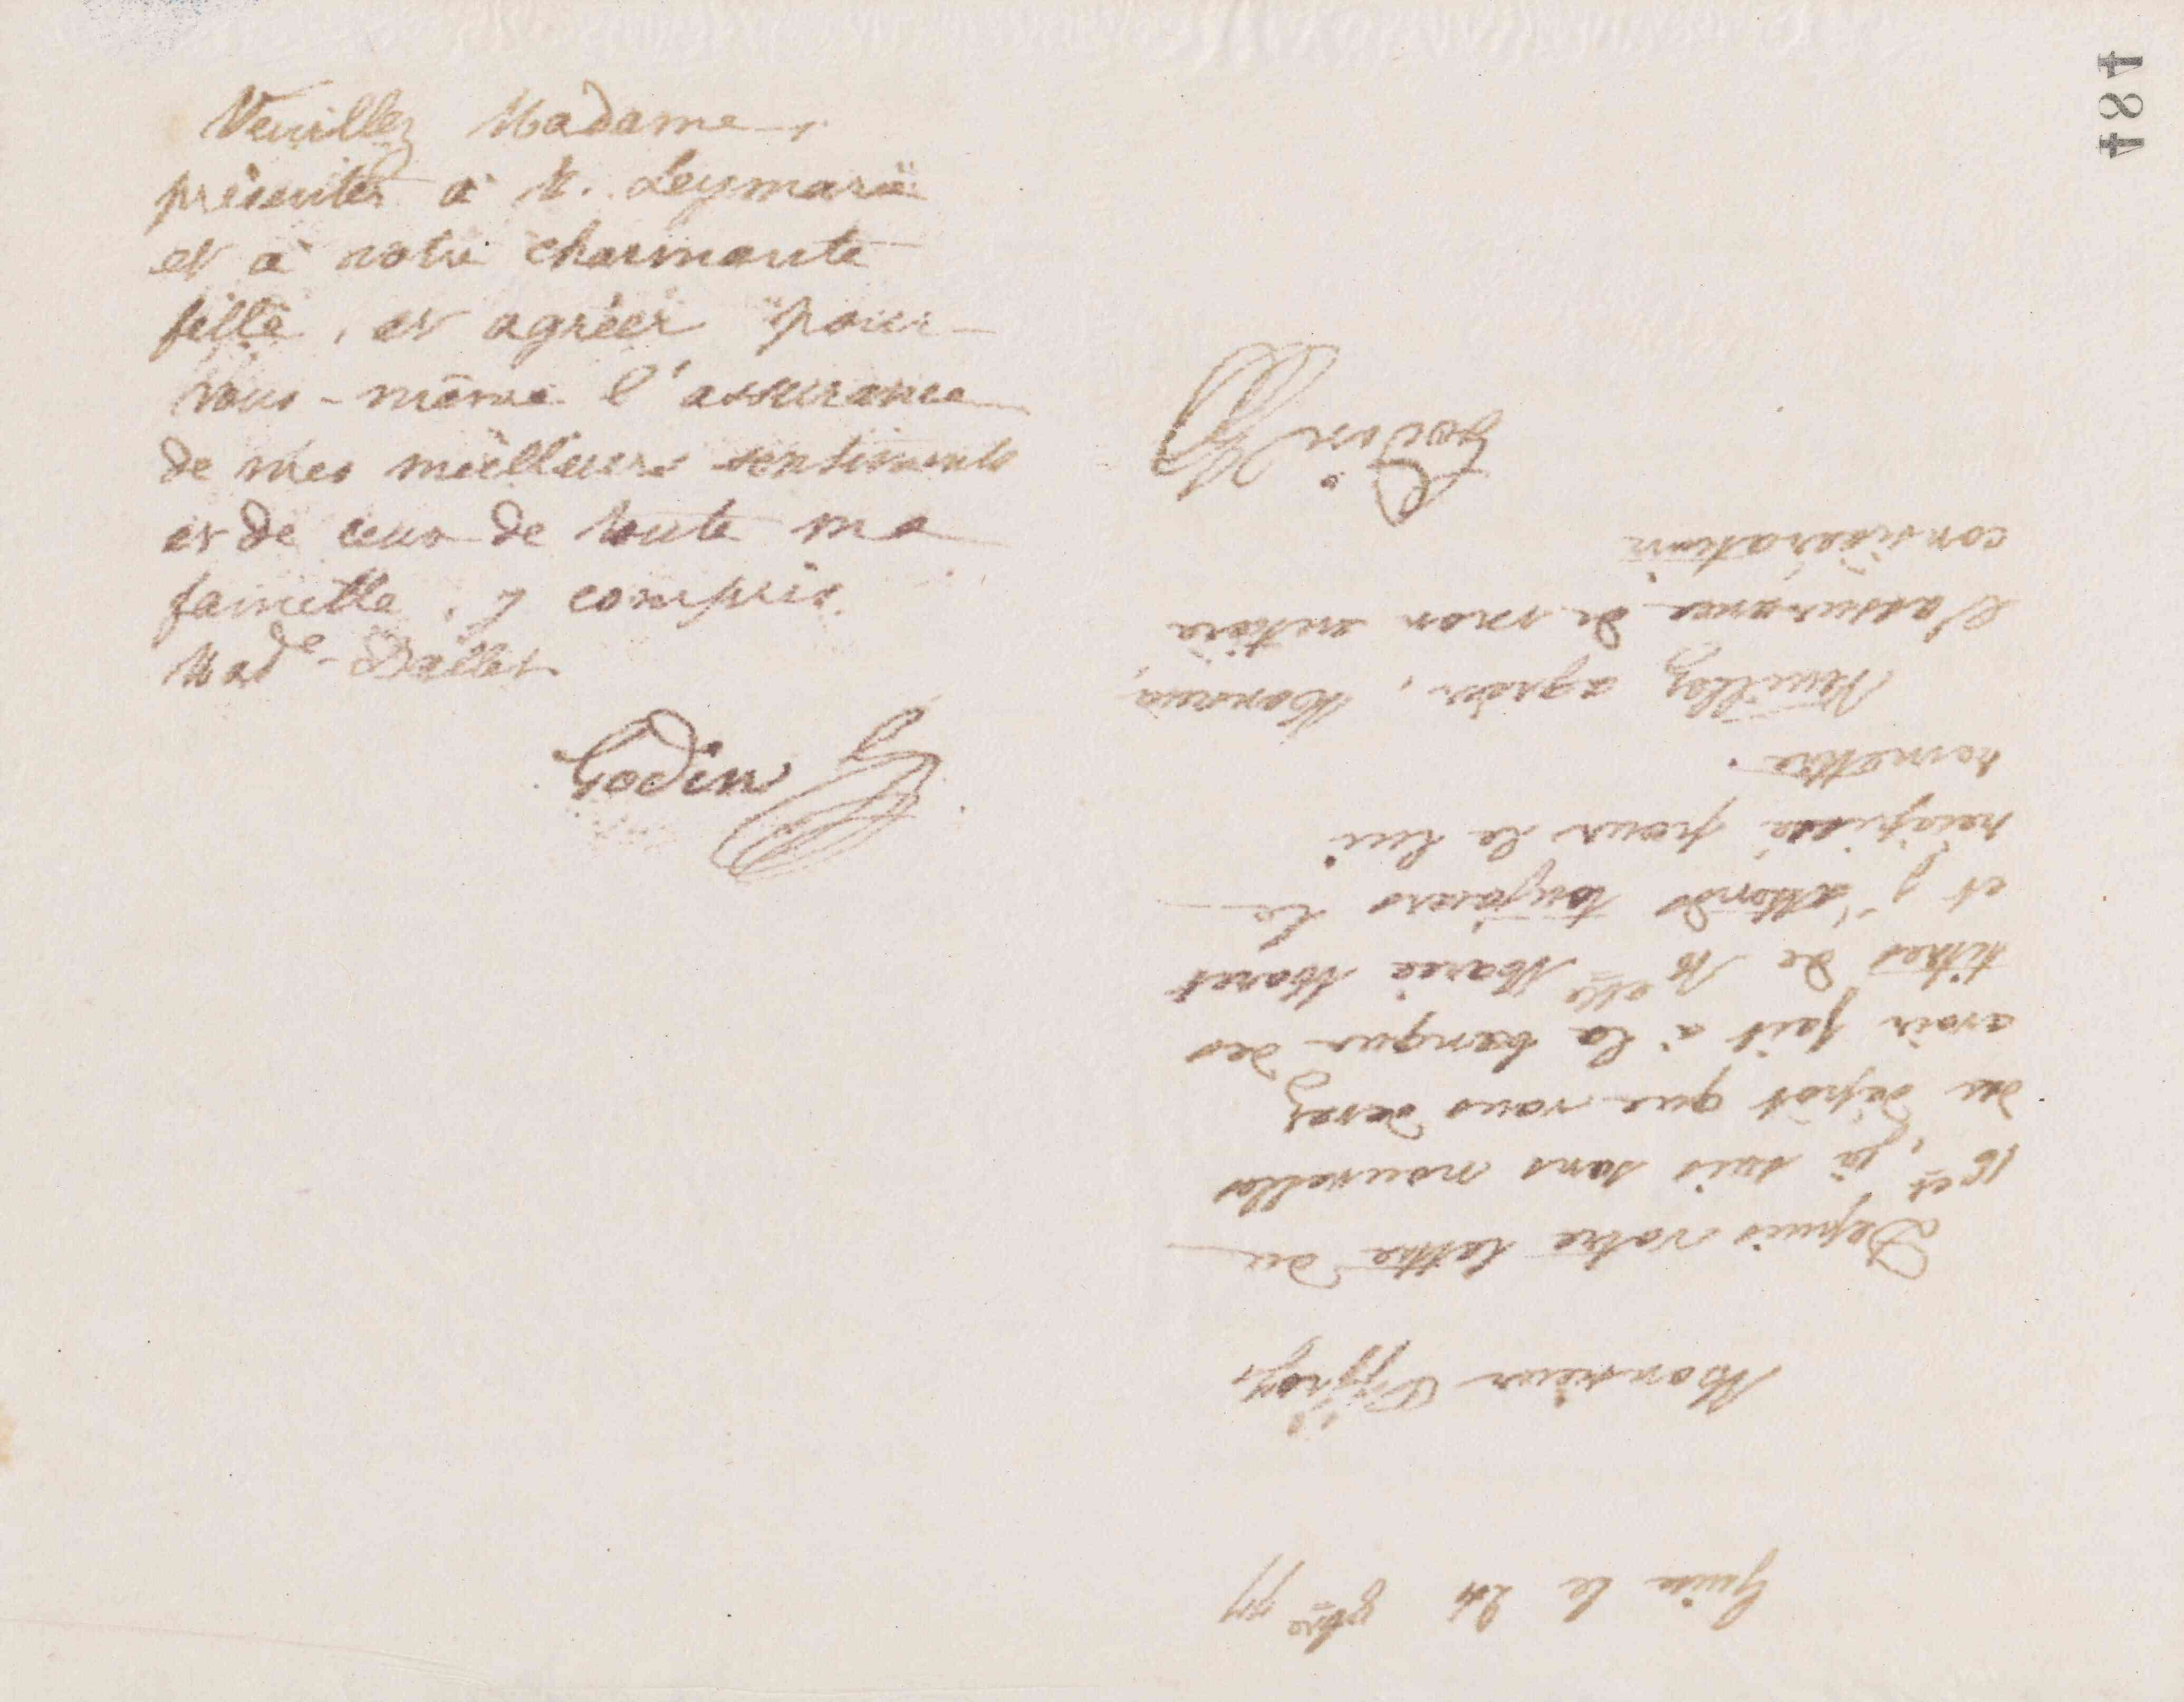 484
Veuillez Madame,
présenter à M. Leymarie
et à votre charmante
fille, et agréer pour
vous-même l'assurance
de mes meilleurs sentiments
et de ceux de toute ma
famille, y compris
Made Dallet
Godin
Guise le 24 8bre 77
Monsieur Offroy,
Depuis votre lettre du
16 ct, je suis sans nouvelles
du dépôt que vous devez
avoir fait à la banque des
titres de Melle Marie Moret
et j'attends toujours le
récépissé pour le lui
remettre.
Veuillez agréer, Monsieur,
l'assurance de mon entière
considération
Godin